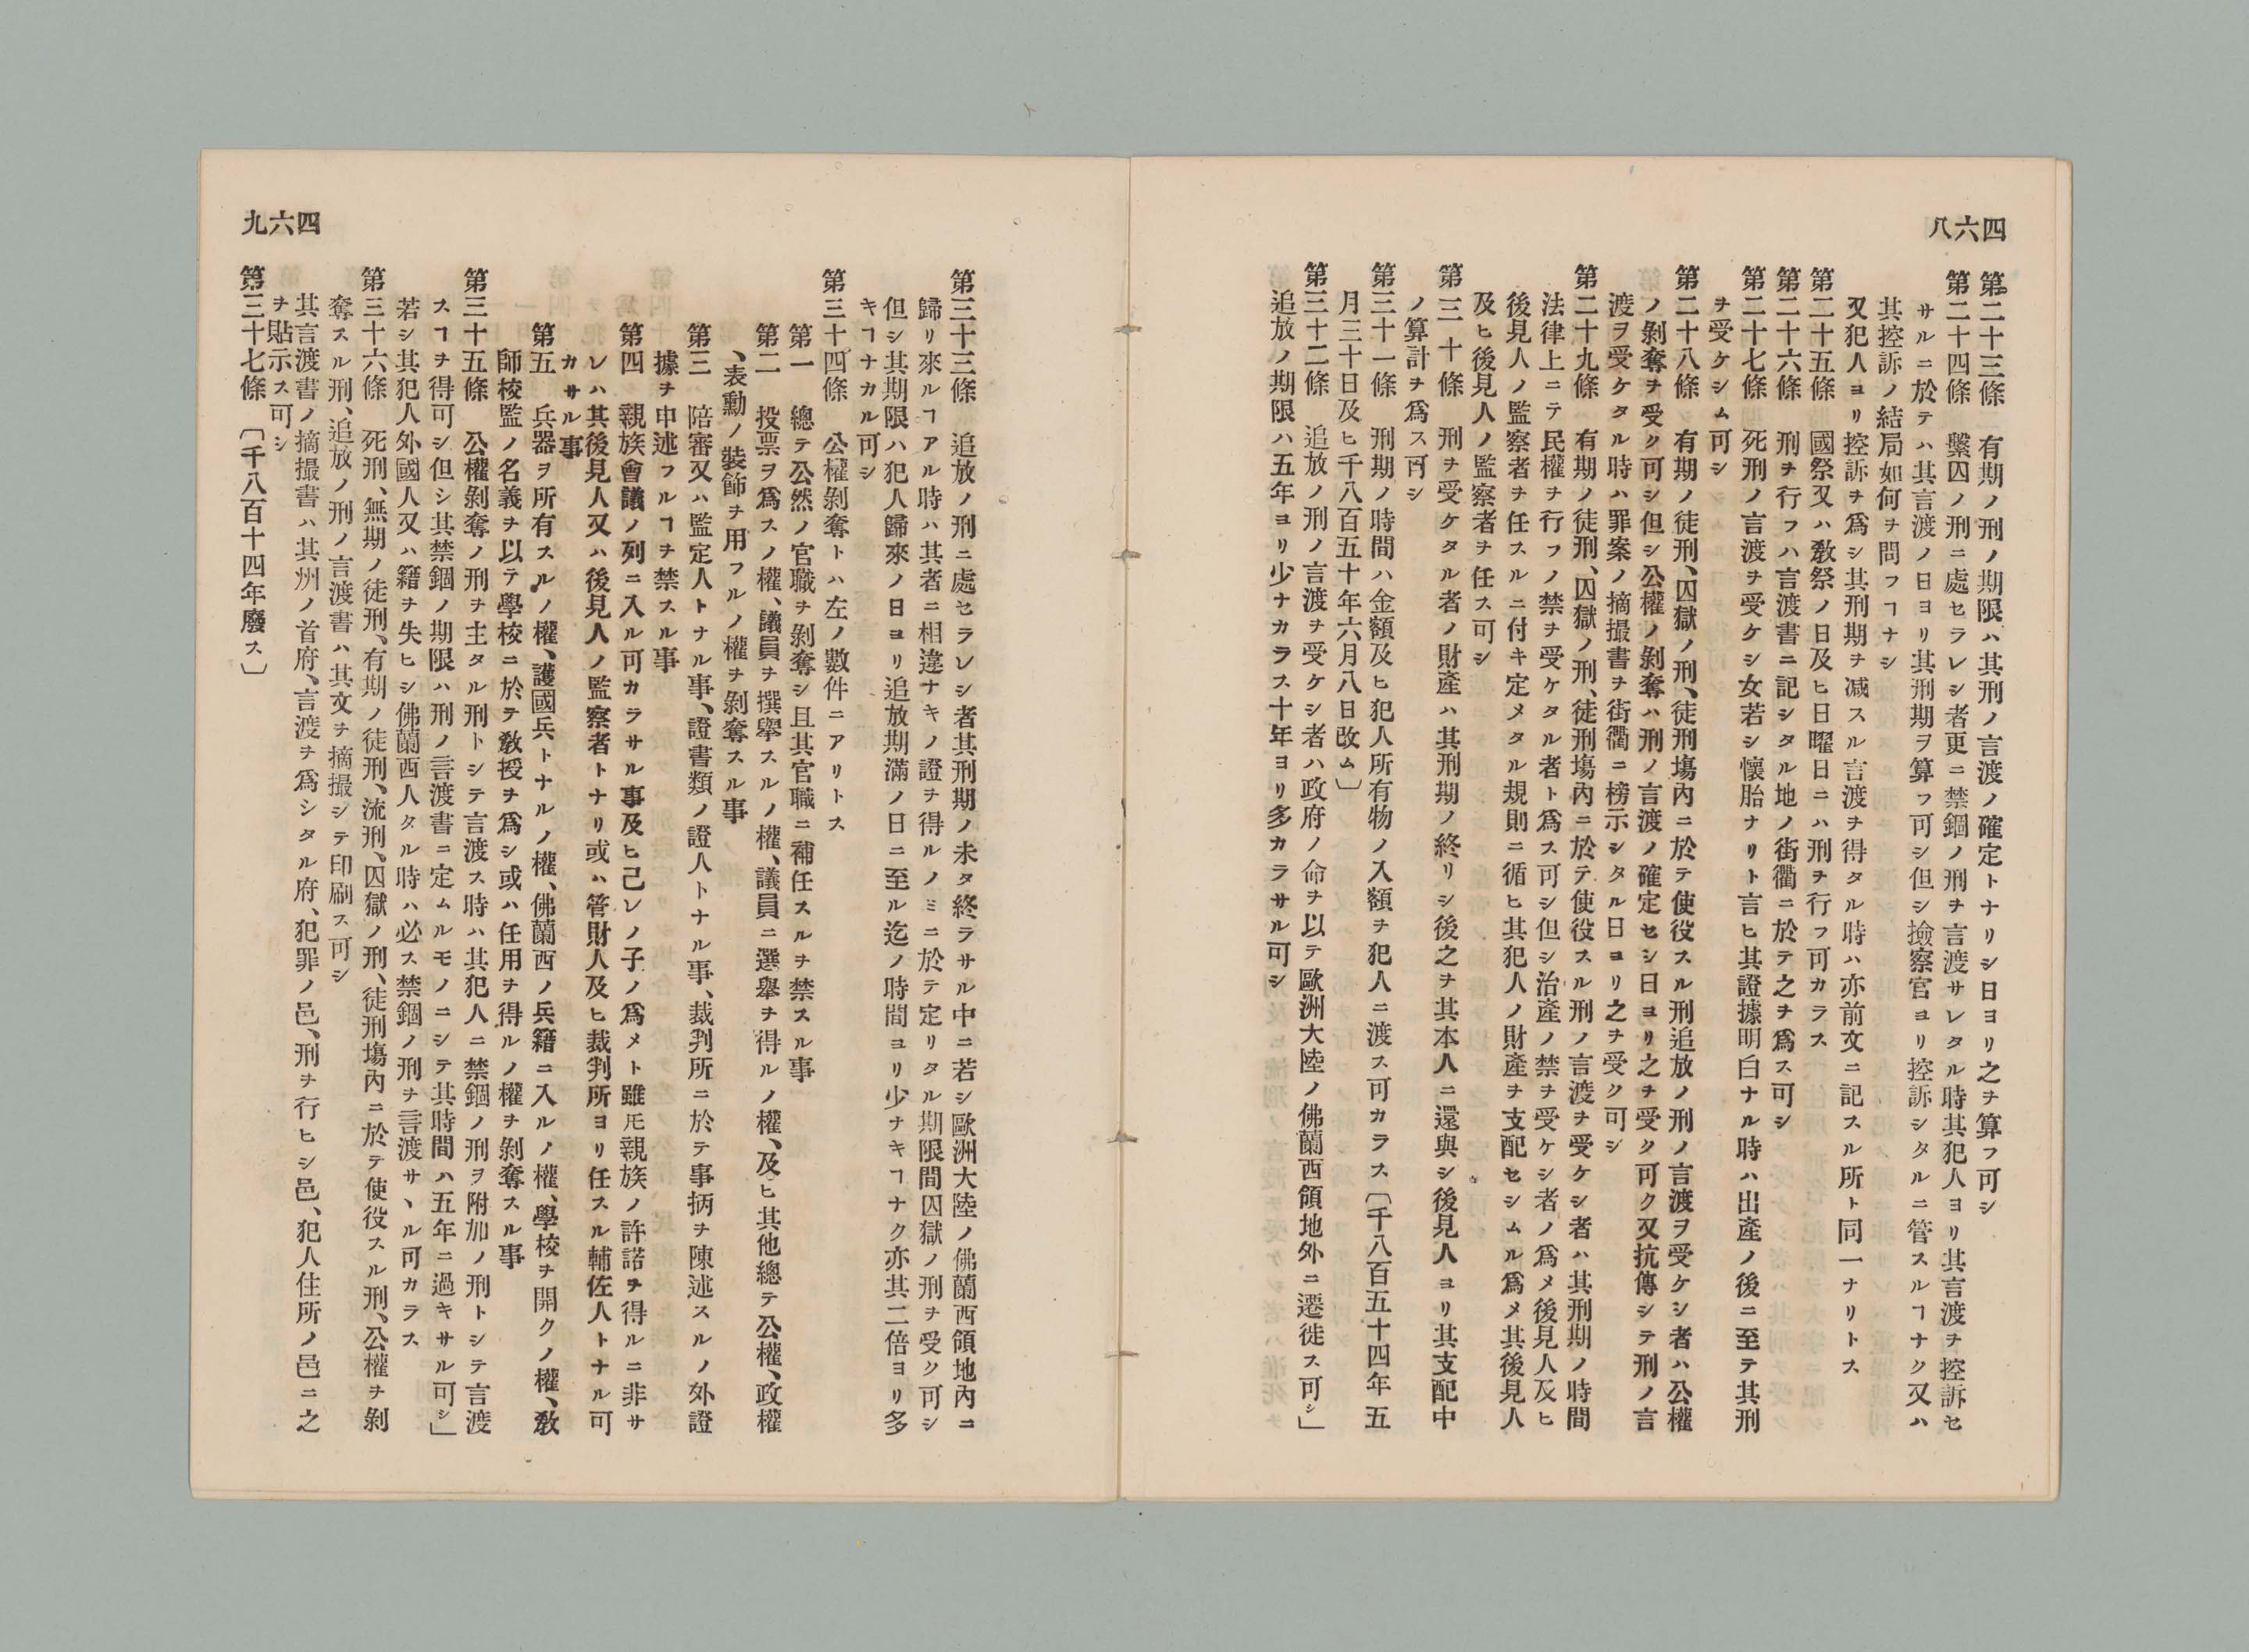 四六八
第二十三條　有期ノ刑ノ期限ハ其刑ノ言渡ノ確定トナリシ日ヨリ之ヲ算フ可シ
第二十四條　繫囚ノ刑ニ處セラレシ者更ニ禁錮ノ刑ヲ言渡サレタル時其犯人ヨリ其言渡ヲ控訴セ
サルニ於テハ其言渡ノ日ヨリ其刑期ヲ算フ可シ但シ撿察官ヨリ控訴シタルニ管スルヿナク又ハ
其控訴ノ結局如何ヲ問フヿナシ
又犯人ヨリ控訴ヲ爲シ其刑期ヲ减スル言渡ヲ得タル時ハ亦前文ニ記スル所ト同一ナリトス
第二十五條　國祭又ハ敎祭ノ日及ヒ日曜日ニハ刑ヲ行フ可カラス
第二十六條　刑ヲ行フハ言渡書ニ記シタル地ノ街衢ニ於テ之ヲ爲ス可シ
第二十七條　死刑ノ言渡ヲ受ケシ女若シ懷胎ナリト言ヒ其證據明白ナル時ハ出產ノ後ニ至テ其刑
ヲ受ケシム可シ
第二十八條　有期ノ徒刑、囚獄ノ刑、徒刑塲內ニ於テ使役スル刑追放ノ刑ノ言渡ヲ受ケシ者ハ公權
ノ剝奪ヲ受ク可シ但シ公權ノ剝奪ハ刑ノ言渡ノ確定セシ日ヨリ之ヲ受ク可ク又抗傳シテ刑ノ言
渡ヲ受ケタル時ハ罪案ノ摘撮書ヲ街衢ニ榜示シタル日ヨリ之ヲ受ク可シ
第二十九條　有期ノ徒刑、囚獄ノ刑、徒刑塲內ニ於テ使役スル刑ノ言渡ヲ受ケシ者ハ其刑期ノ時間
法律上ニテ民權ヲ行フノ禁ヲ受ケタル者ト爲ス可シ但シ治產ノ禁ヲ受ケシ者ノ爲メ後見人及ヒ
後見人ノ監察者ヲ任スルニ付キ定メタル規則ニ循ヒ其犯人ノ財產ヲ支配セシムル爲メ其後見人
及ヒ後見人ノ監察者ヲ任ス可シ
第三十條　刑ヲ受ケタル者ノ財產ハ其刑期ノ終リシ後之ヲ其本人ニ還與シ後見人ヨリ其支配中
ノ算計ヲ爲ス可シ
第三十一條　刑期ノ時間ハ金額及ヒ犯人所有物ノ入額ヲ犯人ニ渡ス可カラス〔千八百五十四年五
月三十日及ヒ千八百五十年六月八日改ム〕
第三十二條　追放ノ刑ノ言渡ヲ受ケシ者ハ政府ノ命ヲ以テ歐洲大陸ノ佛蘭西領地外ニ遷徙ス可シ」
追放ノ期限ハ五年ヨリ少ナカラス十年ヨリ多カラサル可シ
四六九
第三十三條　追放ノ刑ニ處セラレシ者其刑期ノ未タ終ラサル中ニ若シ歐洲大陸ノ佛蘭西領地內ニ
歸リ來ルヿアル時ハ其者ニ相違ナキノ證ヲ得ルノミニ於テ定リタル期限間囚獄ノ刑ヲ受ク可シ
但シ其期限ハ犯人歸來ノ日ヨリ追放期滿ノ日ニ至ル迄ノ時間ヨリ少ナキヿナク亦其二倍ヨリ多
キヿナカル可シ
第三十四條　公權剝奪トハ左ノ數件ニアリトス
第一　總テ公然ノ官職ヲ剝奪シ且其官職ニ補任スルヲ禁スル事
第二　投票ヲ爲スノ權、議員ヲ撰擧スルノ權、議員ニ選擧ヲ得ルノ權、及ヒ其他總テ公權、政權
、表勳ノ裝飾ヲ用フルノ權ヲ剝奪スル事
第三　陪審又ハ監定人トナル事、證書類ノ證人トナル事、裁判所ニ於テ事柄ヲ陳述スルノ外證
據ヲ申述フルヿヲ禁スル事
第四　親族會議ノ列ニ入ル可カラサル事及ヒ己レノ子ノ爲メト雖𪜈親族ノ許諾ヲ得ルニ非サ
レハ其後見人又ハ後見人ノ監察者トナリ或ハ管財人及ヒ裁判所ヨリ任スル輔佐人トナル可
カサル事
第五　兵器ヲ所有スルノ權、護國兵トナルノ權、佛蘭西ノ兵籍ニ入ルノ權、學校ヲ開クノ權、敎
師校監ノ名義ヲ以テ學校ニ於テ敎授ヲ爲シ或ハ任用ヲ得ルノ權ヲ剝奪スル事
第三十五條　公權剝奪ノ刑ヲ主タル刑トシテ言渡ス時ハ其犯人ニ禁錮ノ刑ヲ附加ノ刑トシテ言渡
スヿヲ得可シ但シ其禁錮ノ期限ハ刑ノ言渡書ニ定ムルモノニシテ其時間ハ五年ニ過キサル可シ」
若シ其犯人外國人又ハ籍ヲ失ヒシ佛蘭西人タル時ハ必ス禁錮ノ刑ヲ言渡サヽル可カラス
第三十六條　死刑、無期ノ徒刑、有期ノ徒刑、流刑、囚獄ノ刑、徒刑塲內ニ於テ使役スル刑、公權ヲ剝
奪スル刑、追放ノ刑ノ言渡書ハ其文ヲ摘撮シテ印刷ス可シ
其言渡書ノ摘撮書ハ其洲ノ首府、言渡ヲ爲シタル府、犯罪ノ邑、刑ヲ行ヒシ邑、犯人住所ノ邑ニ之
ヲ貼示ス可シ
第三十七條　〔千八百十四年廢ス〕